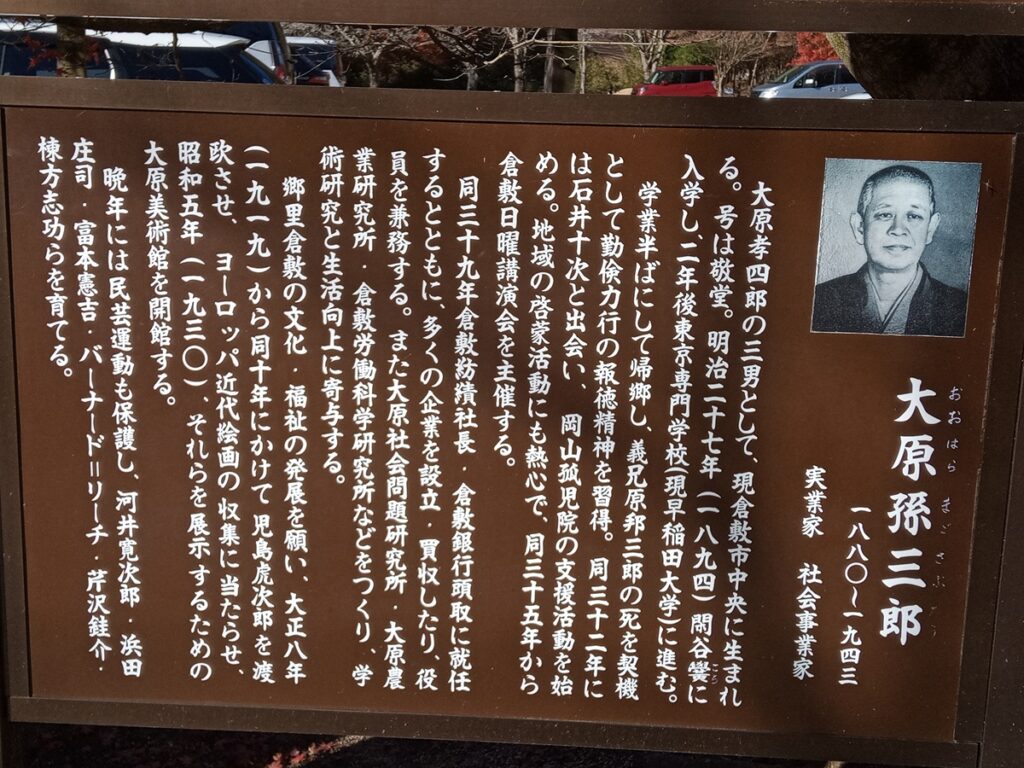 おおはらまごさぶろう
大原孫三郎
一八八〇〜一九四三
実業家 社会事業家
大原孝四郎の三男として、現倉敷市中央に生まれ
る。号は敬堂。明治二十七年(一八九四)閑谷黌に
こう
入学し二年後東京専門学校(現早稲田大学)に進む。
学業半ばにして帰郷し、義兄原邦三郎の死を契機
として勤倹力行の報徳精神を習得。同三十二年に
は石井十次と出会い、岡山孤児院の支援活動を始
める。地域の啓蒙活動にも熱心で、同三十五年から
倉敷日曜講演会を主催する。
同三十九年倉敷紡績社長・倉敷銀行頭取に就任
するとともに、多くの企業を設立・買収したり、役
員を兼務する。また大原社会問題研究所・大原農
業研究所・倉敷労働科学研究所などをつくり、学
術研究と生活向上に寄与する。
郷里倉敷の文化・福祉の発展を願い、大正八年
(一九一九)から同十年にかけて児島虎次郎を渡
欧させ、ヨーロッパ近代絵画の収集に当たらせ、
昭和五年(一九三〇)、それらを展示するための
大原美術館を開館する。
晩年には民芸運動も保護し、河井寛次郎・浜田
庄司・富本憲吉・バーナード=リーチ・芹沢銈介・
棟方志功らを育てる。